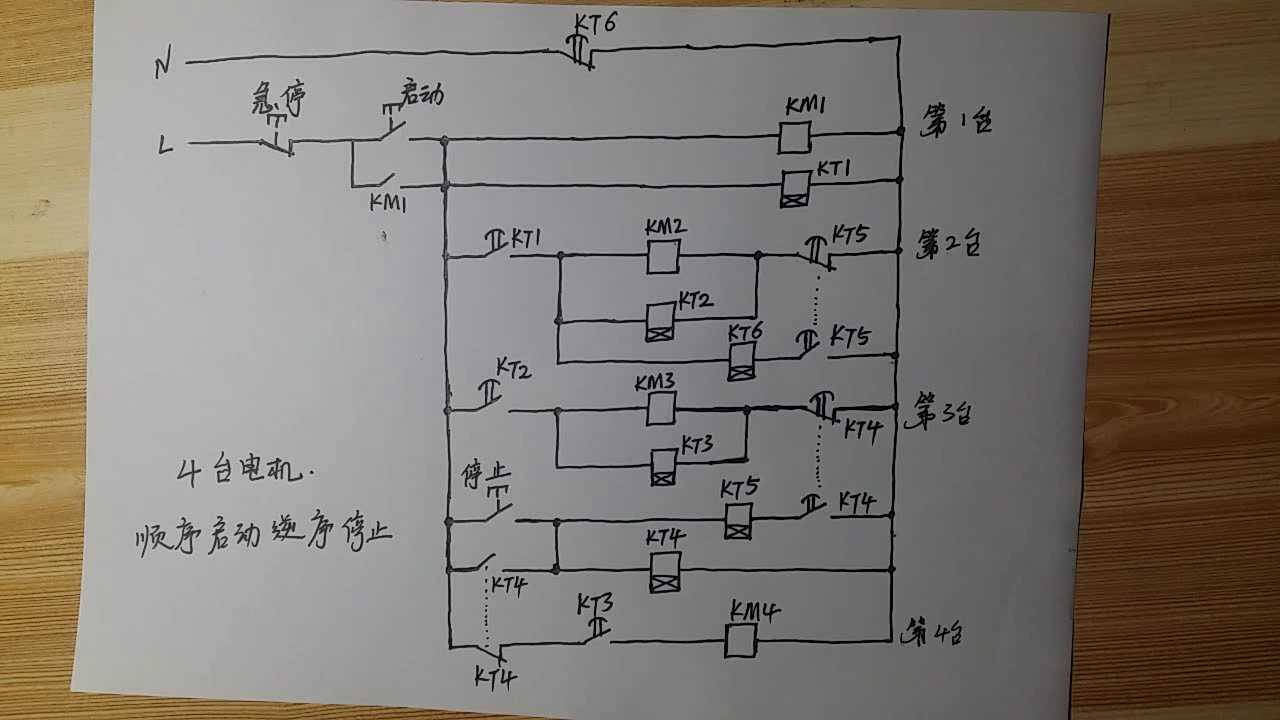 KT6
N
急停
启动
KM1
第1台
L
KT1
KM1
KT1
KM2
KT5
第2台
KT2
KT6
KT5
KT2
KM3
KT4
第3台
KT3
4台电机.
停止
KT5
KT4
顺序启动逆序停止
KT4
KT4
KT3
KM4
第4台
KT4